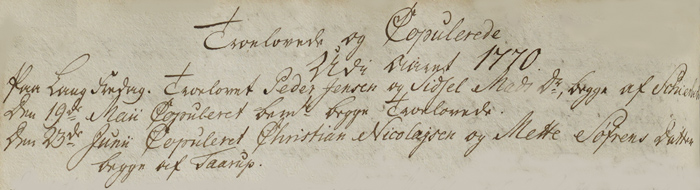 Troelovede og Copulerede
Udi Aaret 1770.
Paa Lang Fredag. Troelovet Peder Jensen og Sidsel Mads Dr, begge af
Den 19de Maii Copuleret bemte begge Troelovede.
Den 23de Junii Copuleret Christian Nicolajsen og Mette Sofrens Datter
begge af Taarup.